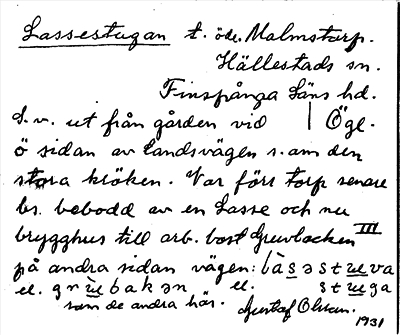 Lassestugan t. öde. Malmstorp.
Hällestads sn.
Finspånga läns hd.
S.v. ut från gården vid | Ögl.
ö sidan av landsvägen s. om den
stora kröken. Var förr torp senare
bs. bebodd av en Lasse och nu
brygghus till arb. bost Gruvbacken III
på andra sidan vägen: làsəstuva
el. gruvbakən el. stuga
som de andra här. Gustaf Olsson.
1931